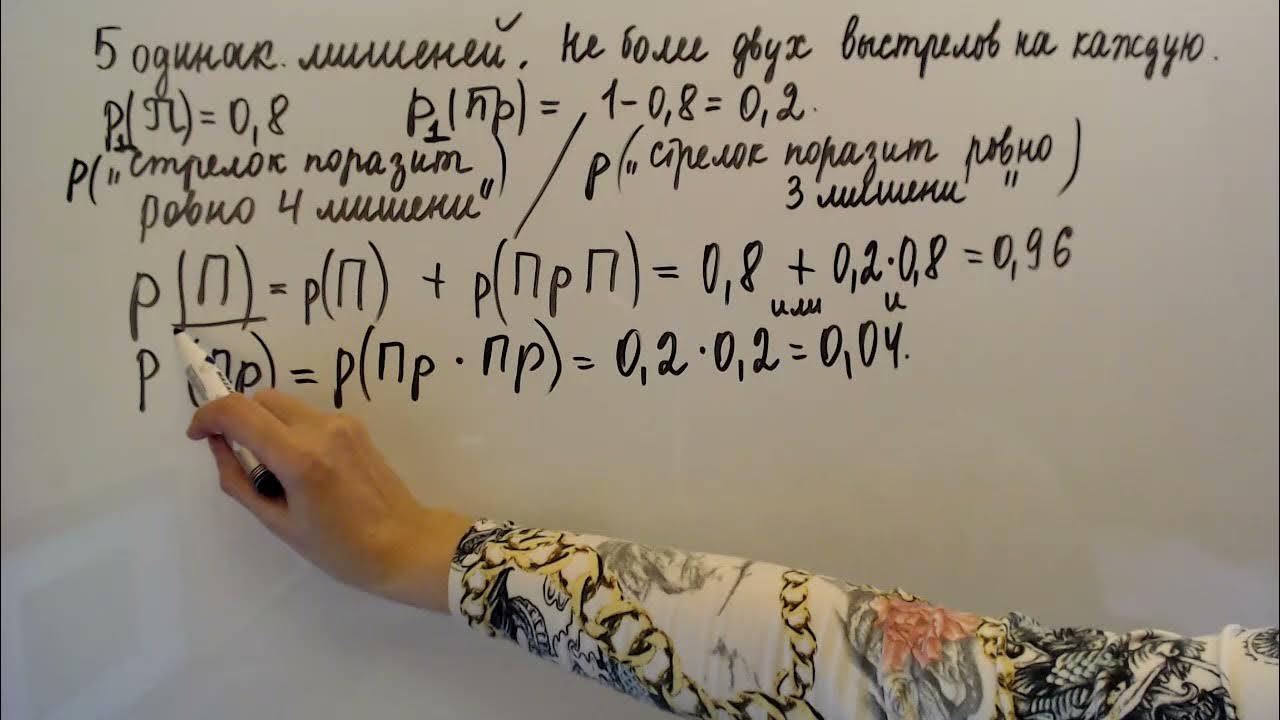 5 одинак. мишеней. Не более двух выстрелов на каждую.
P₁(П) = 0,8 P₁(Пр) = 1 - 0,8 = 0,2.
P(„стрелок поразит ровно 4 мишени") / P(„стрелок поразит ровно 3 мишени")
P(П) = P(П) + P(ПрП) = 0,8 + 0,2·0,8 = 0,96
или и
P(Пр) = P(Пр · Пр) = 0,2 · 0,2 = 0,04.